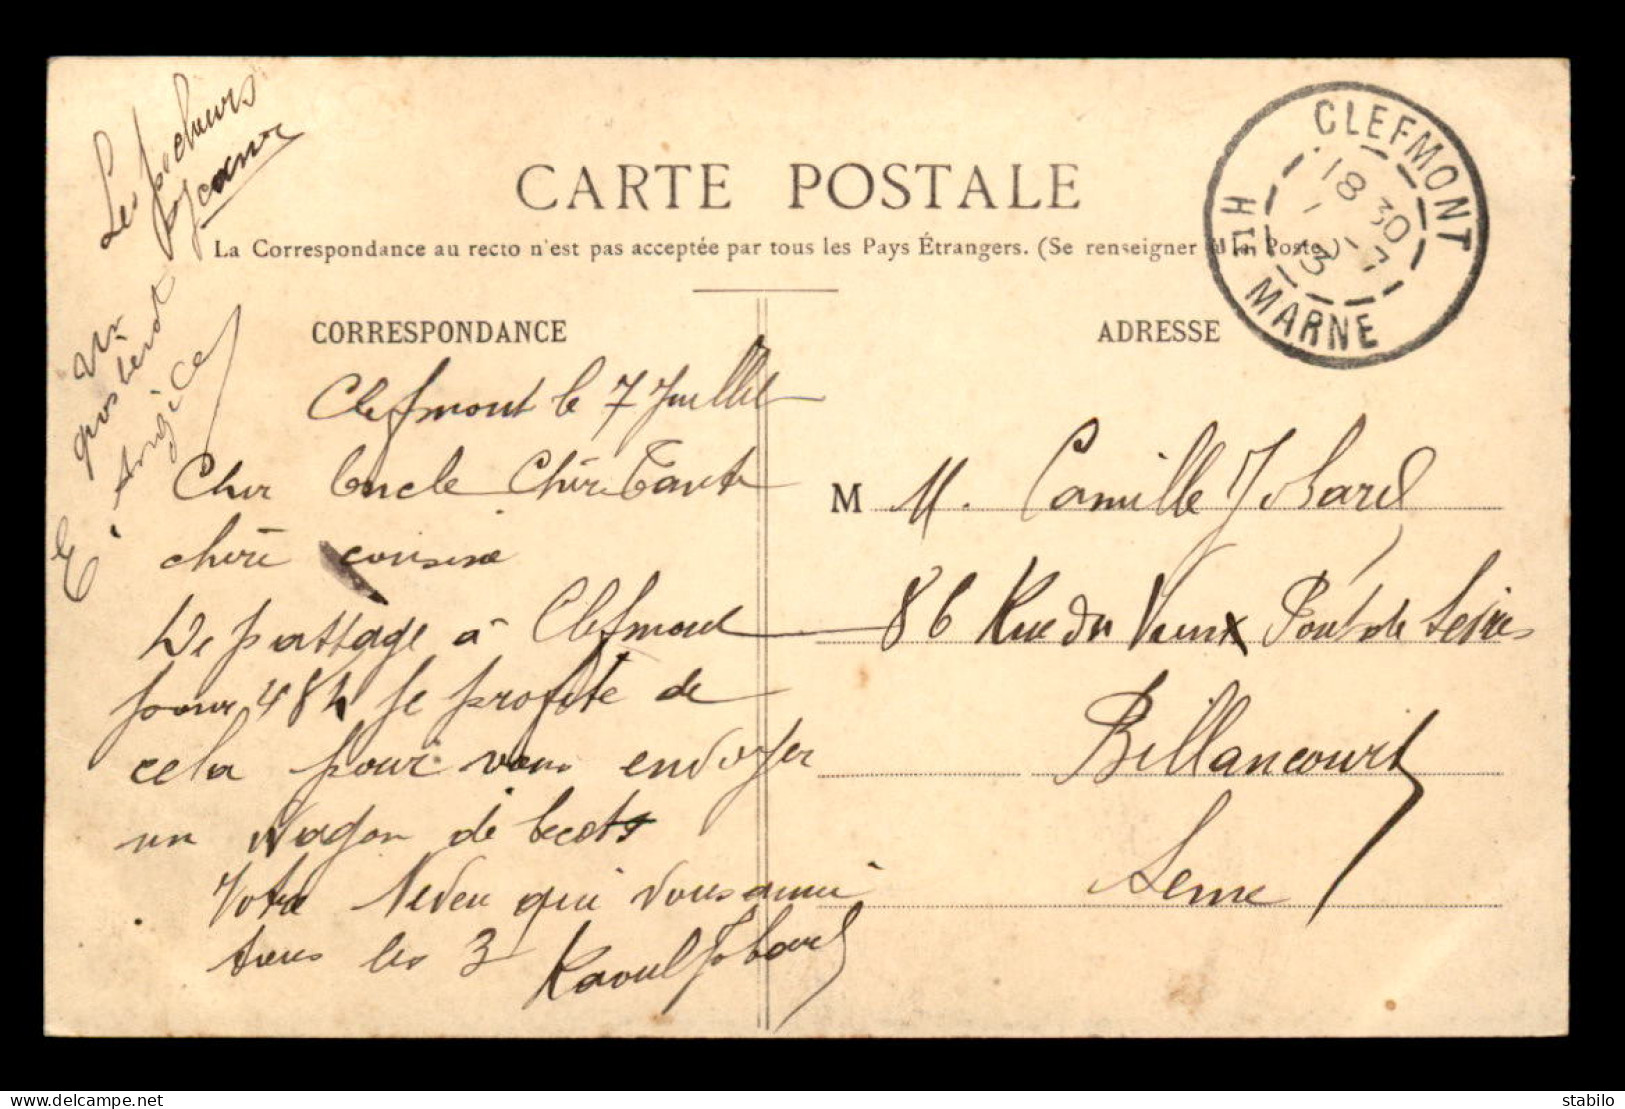 CARTE POSTALE
La Correspondance au recto n'est pas acceptée par tous les Pays Étrangers. (Se renseigner à la Poste.)
CORRESPONDANCE
Clefmont le 7 Juillet
Cher Oncle Chère Tante
chère cousine
De passage à Clefmont
pour 48h je profite de
cela pour vous envoyer
un wagon de becots
Votre Neveu qui vous aime
tous les 3 Raoul Jobard
Les pecheurs
Jeanne
ADRESSE
M M. Camille Jobard
86 Rue du Vieux Pont de Sèvres
Billancourt
Seine
CLEFMONT
18 30
7 - 7
13
HTE MARNE
stabilo
delcampe.net